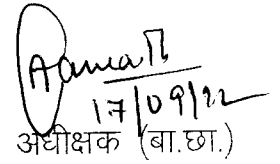 17/09/22
अधीक्षक (बा.छा.)